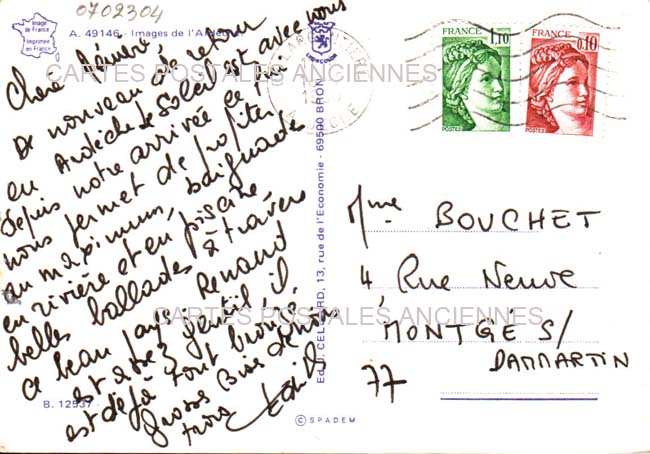 0702304
Image de France
Imprimée en France
A. 49146 - Images de l'Ardèche
CARTES POSTALES ANCIENNES
Chère Mémère,
De nouveau de retour
en Ardèche le Soleil est avec nous
depuis notre arrivée ce qui
nous permet de profiter
au maximum, baignade
en rivière et en piscine
belles ballades à travers
ce beau pays. Renaud
est assez gentil, il
est déjà tout bronzé.
Grosses Bises de nous
trois
B. 12937
Ed. J. CELLARD, 13, rue de l'Economie - 69500 BRON
© SPADEM
FRANCE
1,10
POSTES
FRANCE
0,10
POSTES
Mme BOUCHET
4 Rue Neuve
CARTES POSTALES ANCIENNES
MONTGÉ S/
DAMMARTIN
77